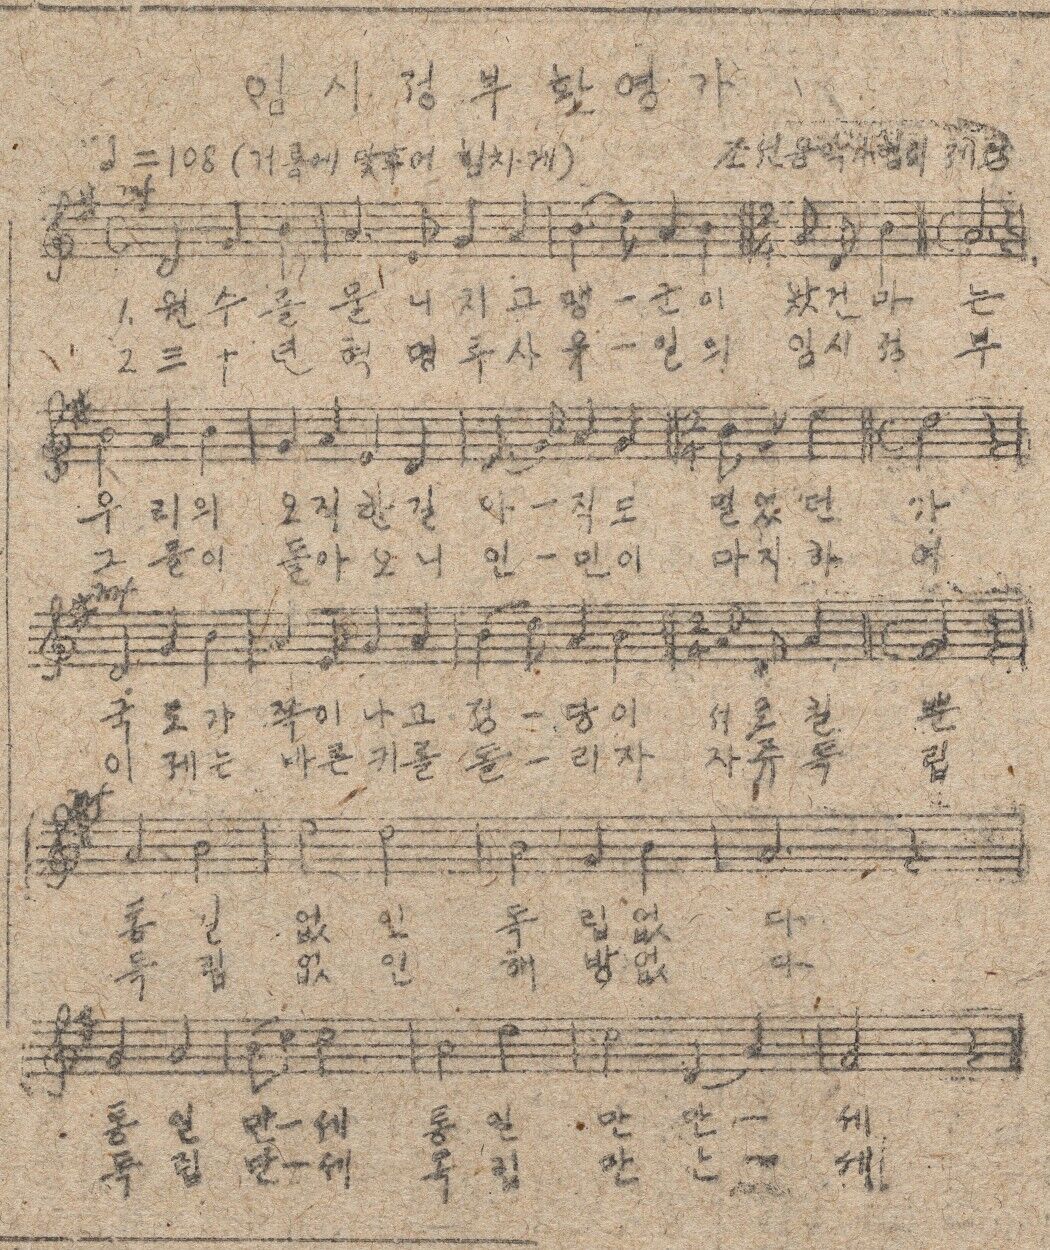 임시정부 환영가
♩=108 (거름에 맞추어 힘차게)
1. 원수를 물니치고 맹-군이 왔건마는
2 三十년 혁명투사 유-일의 임시정부
우리의 오직한길 아-직도 멀었던가
그들이 돌아오니 인-민이 마지하여
국토가 짝이나고 정-당이 서로 뿐
이제는 바른키를 돌-리자 자주독립
통일 없인 독립없다
독립 없인 해방없다
통일 만-세 통일 만 만- 세
독립 만-세 독립 만 세